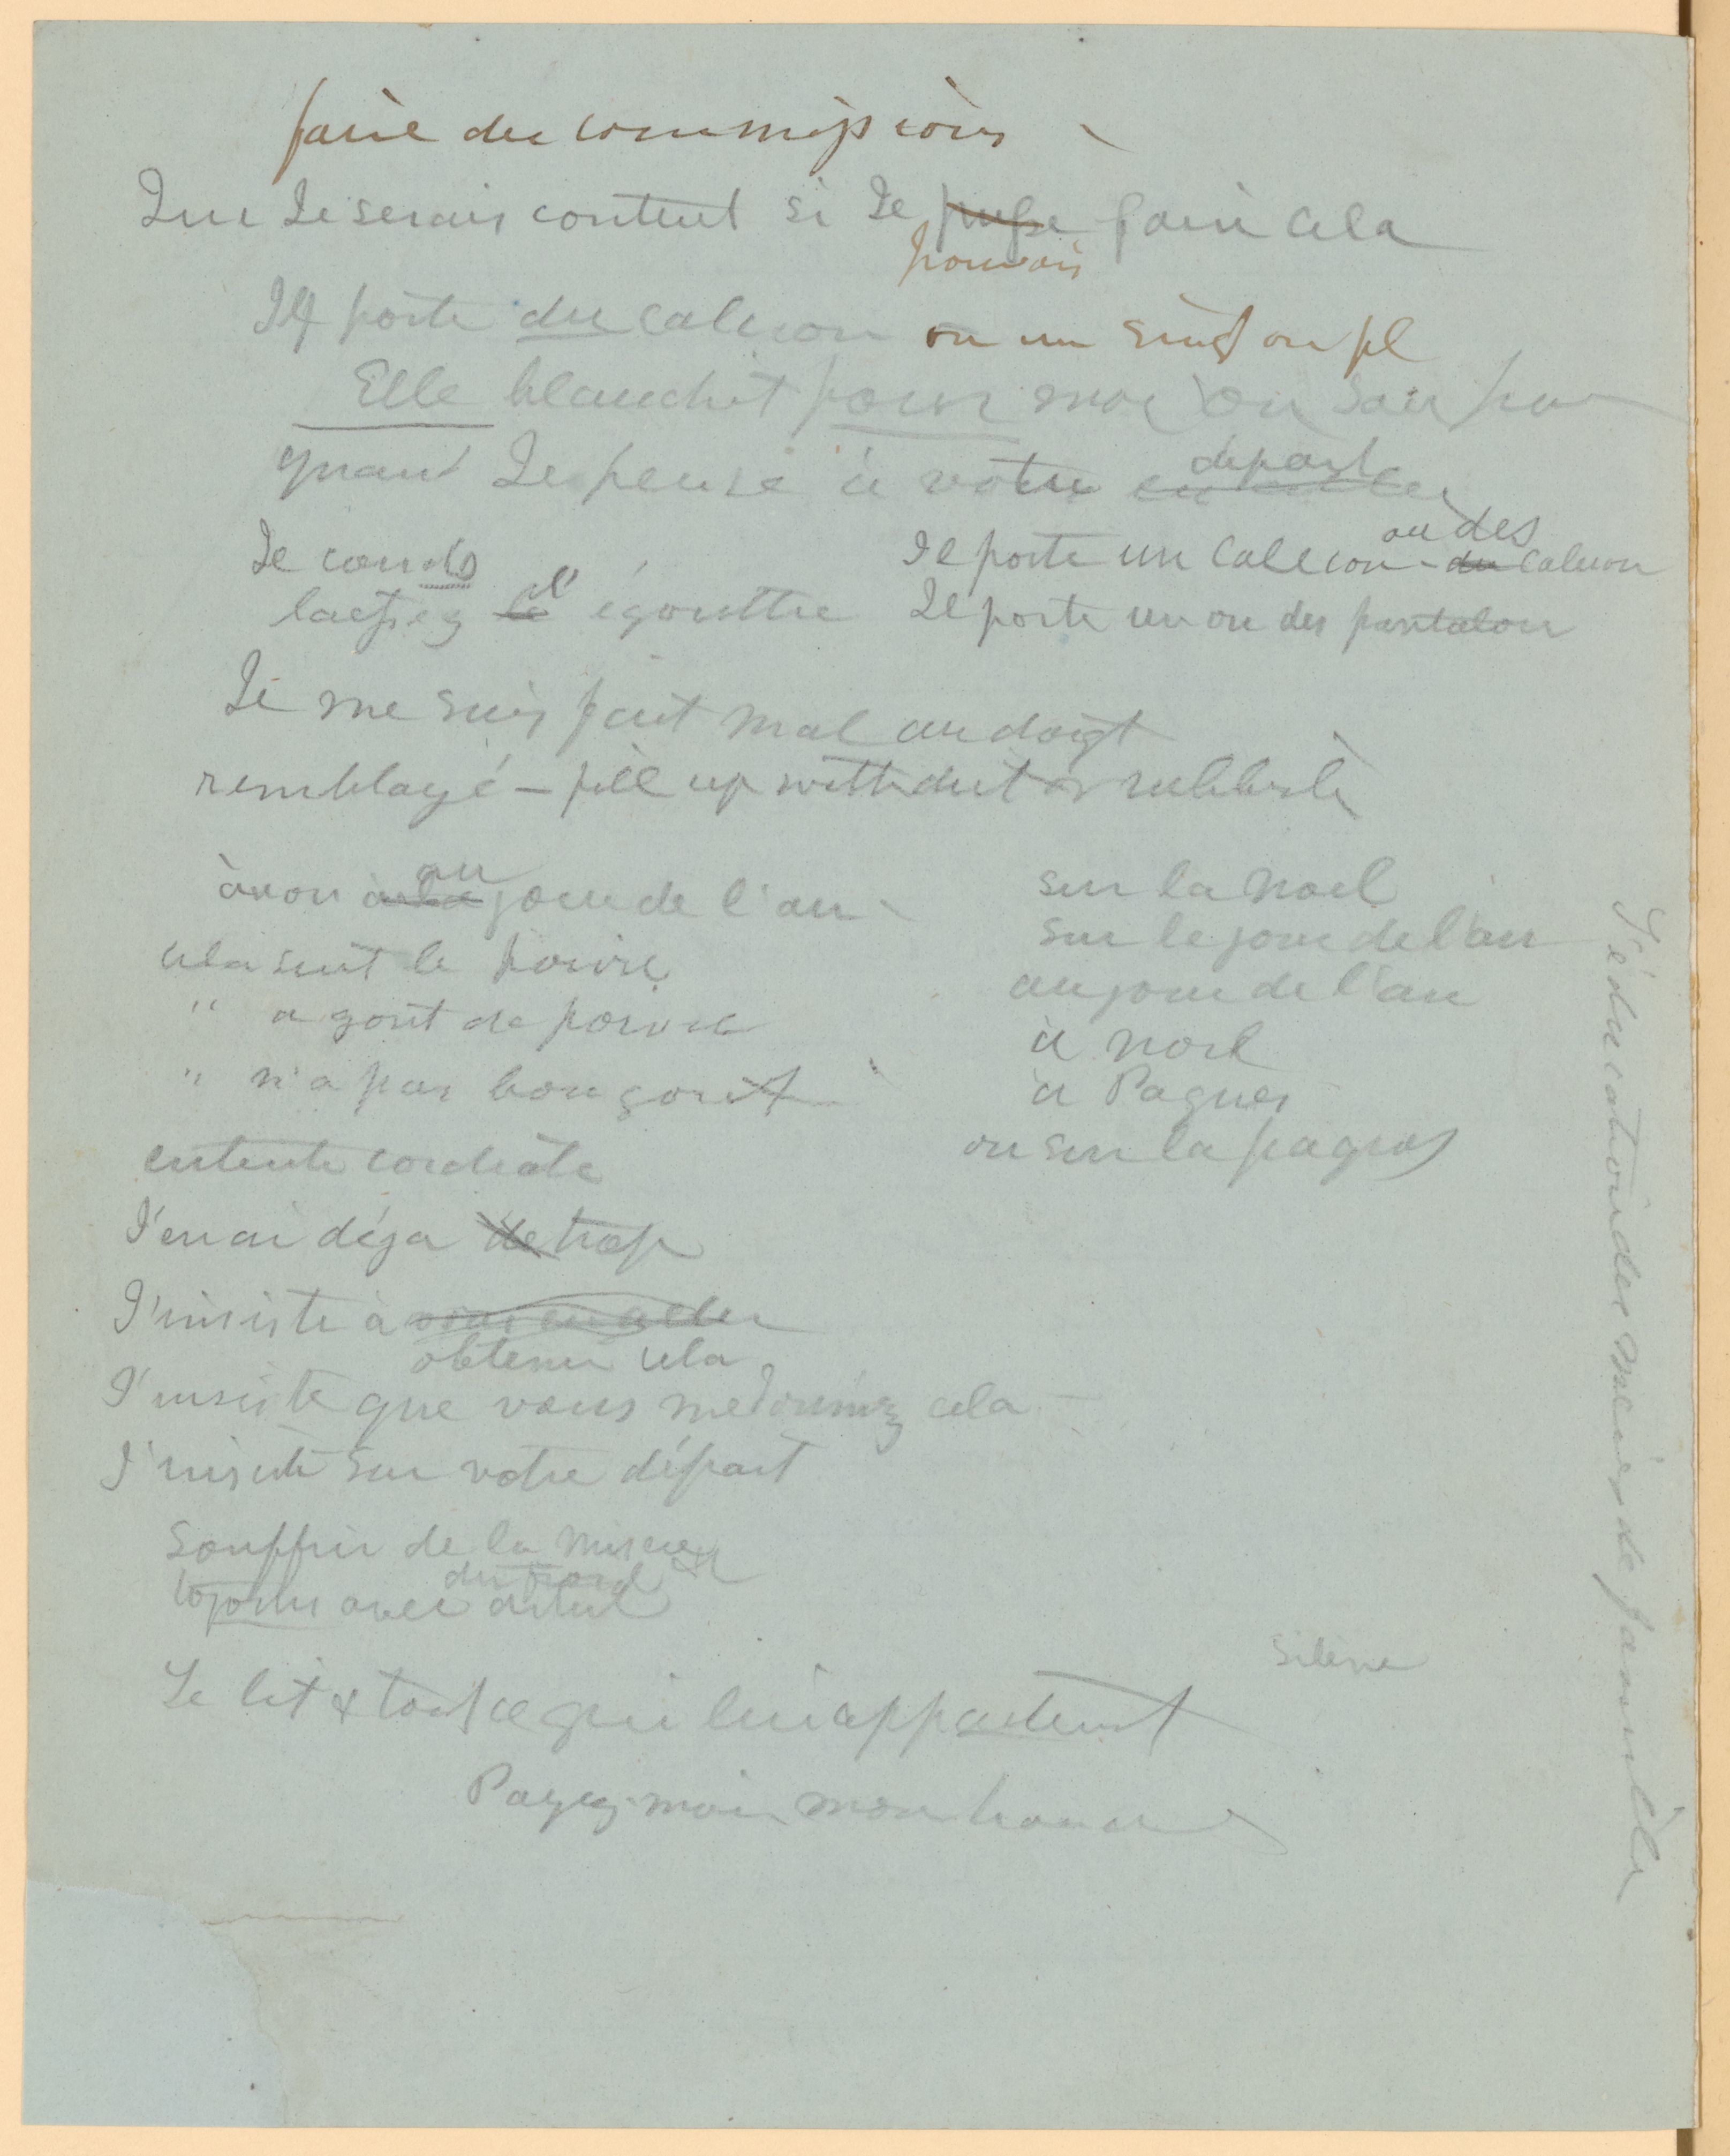 faire des commissions
Que Je serais content si Je puisse faire cela
pouvois
Il porte du calecon ou un sing ou pl
Elle blanchit pour moi ou
quand Je pense à votre
depart
Je couds
ou des
Il porte un calecon - du calecon
laissez le l' égouttre
Il porte un ou des pantalon
Je me suis fait mal au doigt
remblayé – fill up with dirt or rubbish
au
jour de l'an
sur la Noel
cela sent le poivre
sur le jour de l'an
" a gout de poivre
au jour de l'an
à Noel
" n'a pas bon gout
a Paques
entente cordiale
ou sur la paques
J'en ai déja de trop
J'insiste à vous en aller
obtenir cela
J'insiste que vous me donniez cela –
J'insiste sur votre départ
Souffrir de la misere
du nord
avec
Le lit & tout ce qui lui appartient
Payez-moi mon
L'éducation des meres de famille